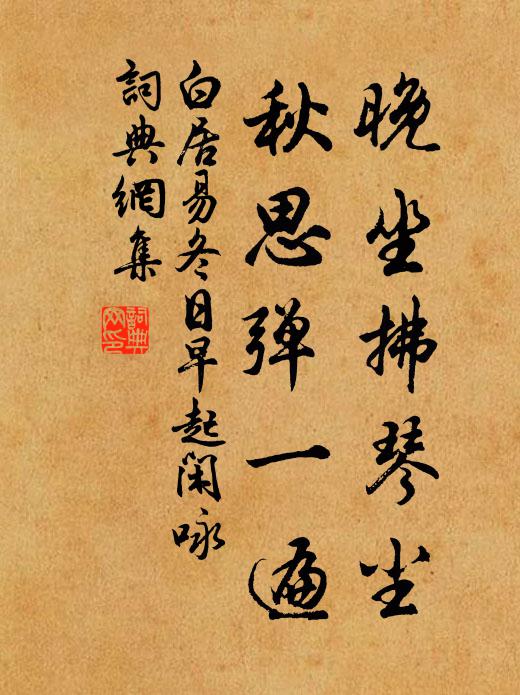 晚坐拂琴尘
秋思弹一遍
白居易冬日早起闲咏
词典網集
詞典网印